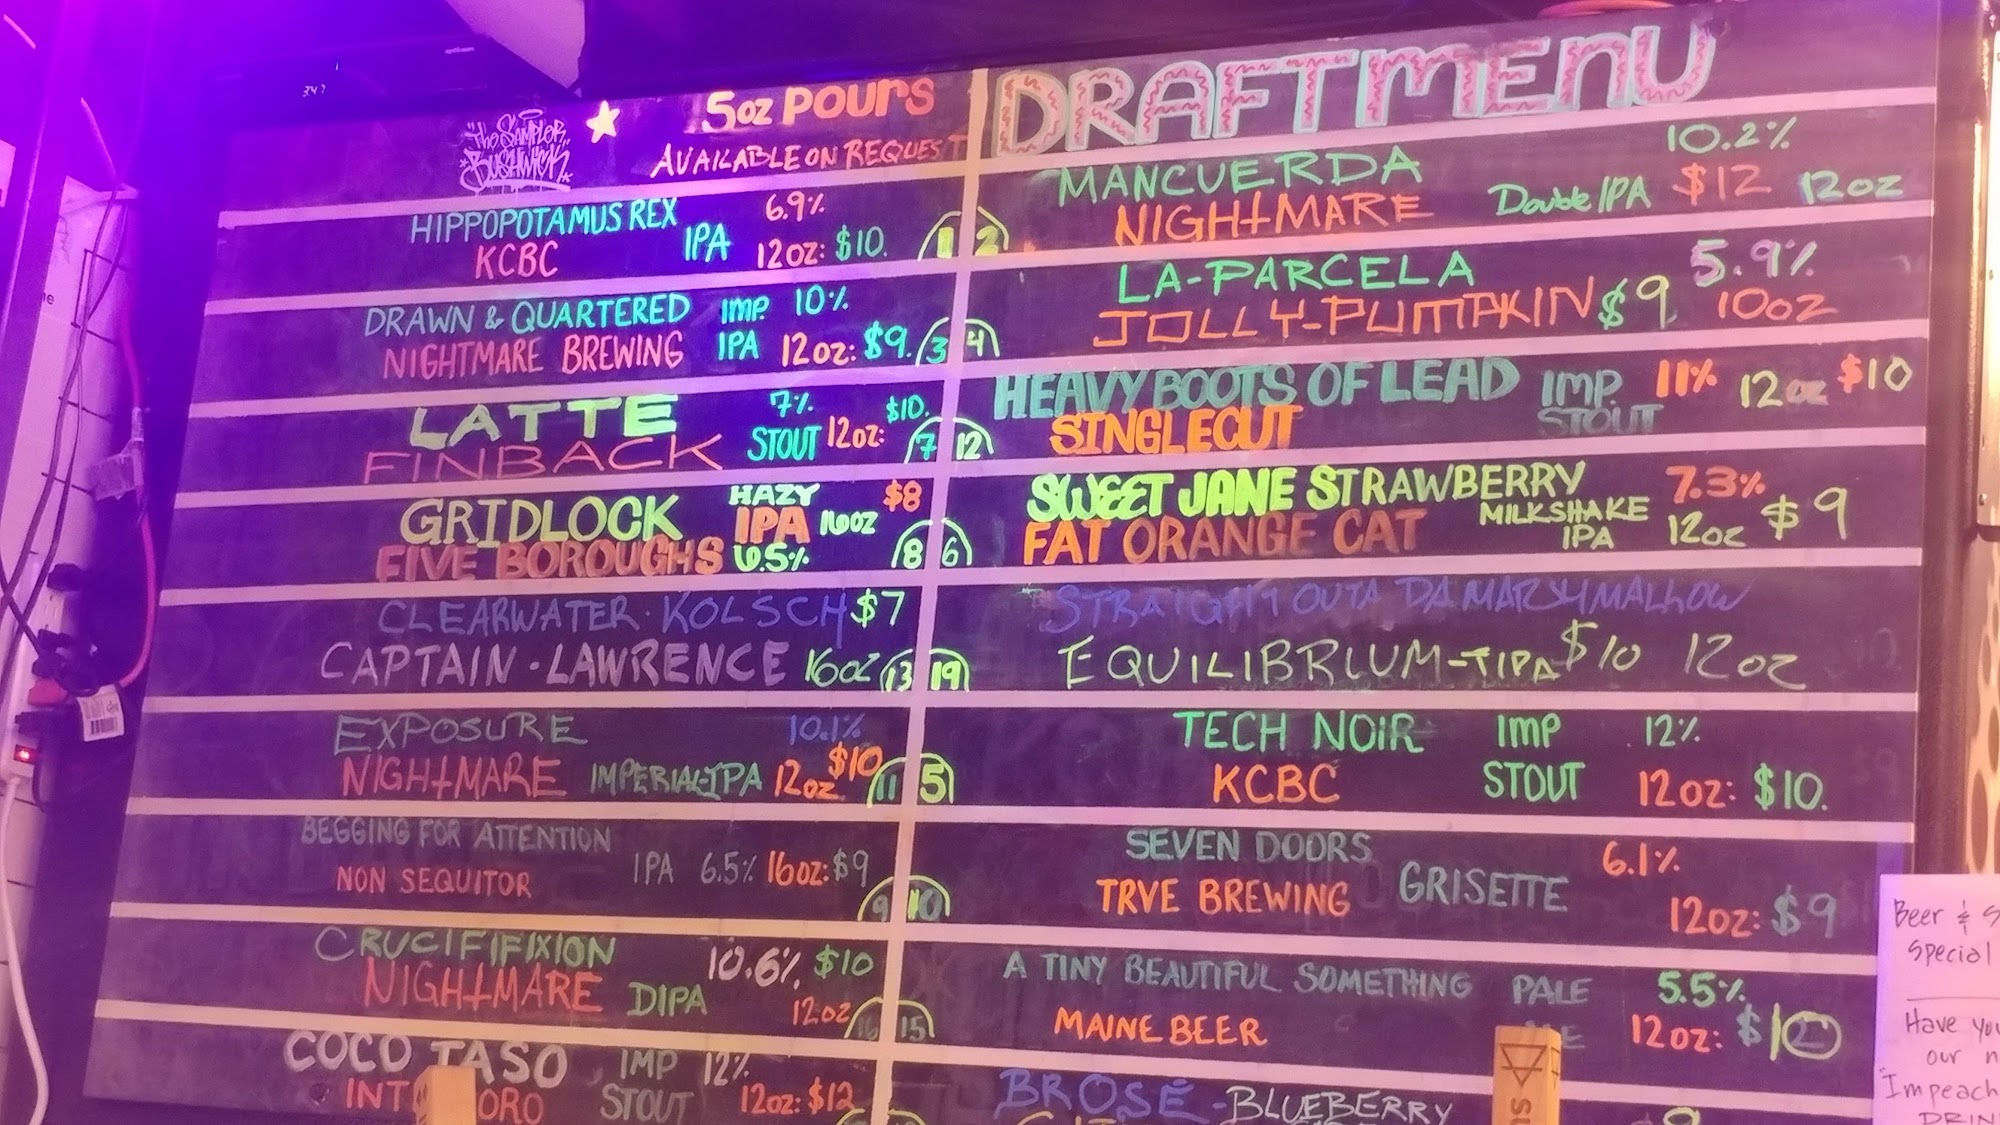 The Sampler
Bushwick
5oz POURS
AVAILABLE ON REQUEST
DRAFT MENU
HIPPOPOTAMUS REX 6.9%
KCBC IPA 12oz: $10. 1
DRAWN & QUARTERED IMP. 10%
NIGHTMARE BREWING IPA 12oz: $9. 3
LATTE 7% $10.
FINBACK STOUT 12oz: 7
GRIDLOCK HAZY $8
IPA 16oz
FIVE BOROUGHS 6.5% 8
CLEARWATER · KOLSCH $7
CAPTAIN · LAWRENCE 16oz 13
EXPOSURE 10.1%
NIGHTMARE IMPERIAL-IPA 12oz $10 11
BEGGING FOR ATTENTION
NON SEQUITOR IPA 6.5% 16oz: $9
9
CRUCIFIFIXION 10.6% $10
NIGHTMARE DIPA 12oz 16
COCO TASO IMP 12%
INT ORO STOUT 12oz: $12
MANCUERDA 10.2%
2 NIGHTMARE Double IPA $12 12oz
LA-PARCELA 5.9%
4 JOLLY-PUMPKIN $9 10oz
HEAVY BOOTS OF LEAD IMP. 11% 12oz $10
12 SINGLECUT STOUT
SWEET JANE STRAWBERRY 7.3%
MILKSHAKE
6 FAT ORANGE CAT IPA 12oz $9
STRAIGHT OUTA DA MARSHMALLOW
19 EQUILIBRIUM-TIPA $10 12oz
TECH NOIR IMP 12%
5 KCBC STOUT 12oz: $10.
SEVEN DOORS 6.1%
TRVE BREWING GRISETTE
10 12oz: $9
A TINY BEAUTIFUL SOMETHING PALE 5.5%
15 MAINE BEER 12oz: $10
BROSÉ - BLUEBERRY
Beer &
Special
Have you
our
"Impeach